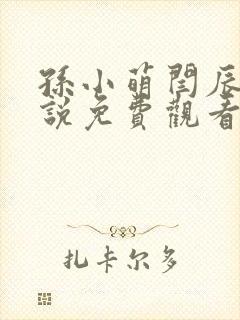 孫小萌閆辰
說免費觀看
扎卡尔多